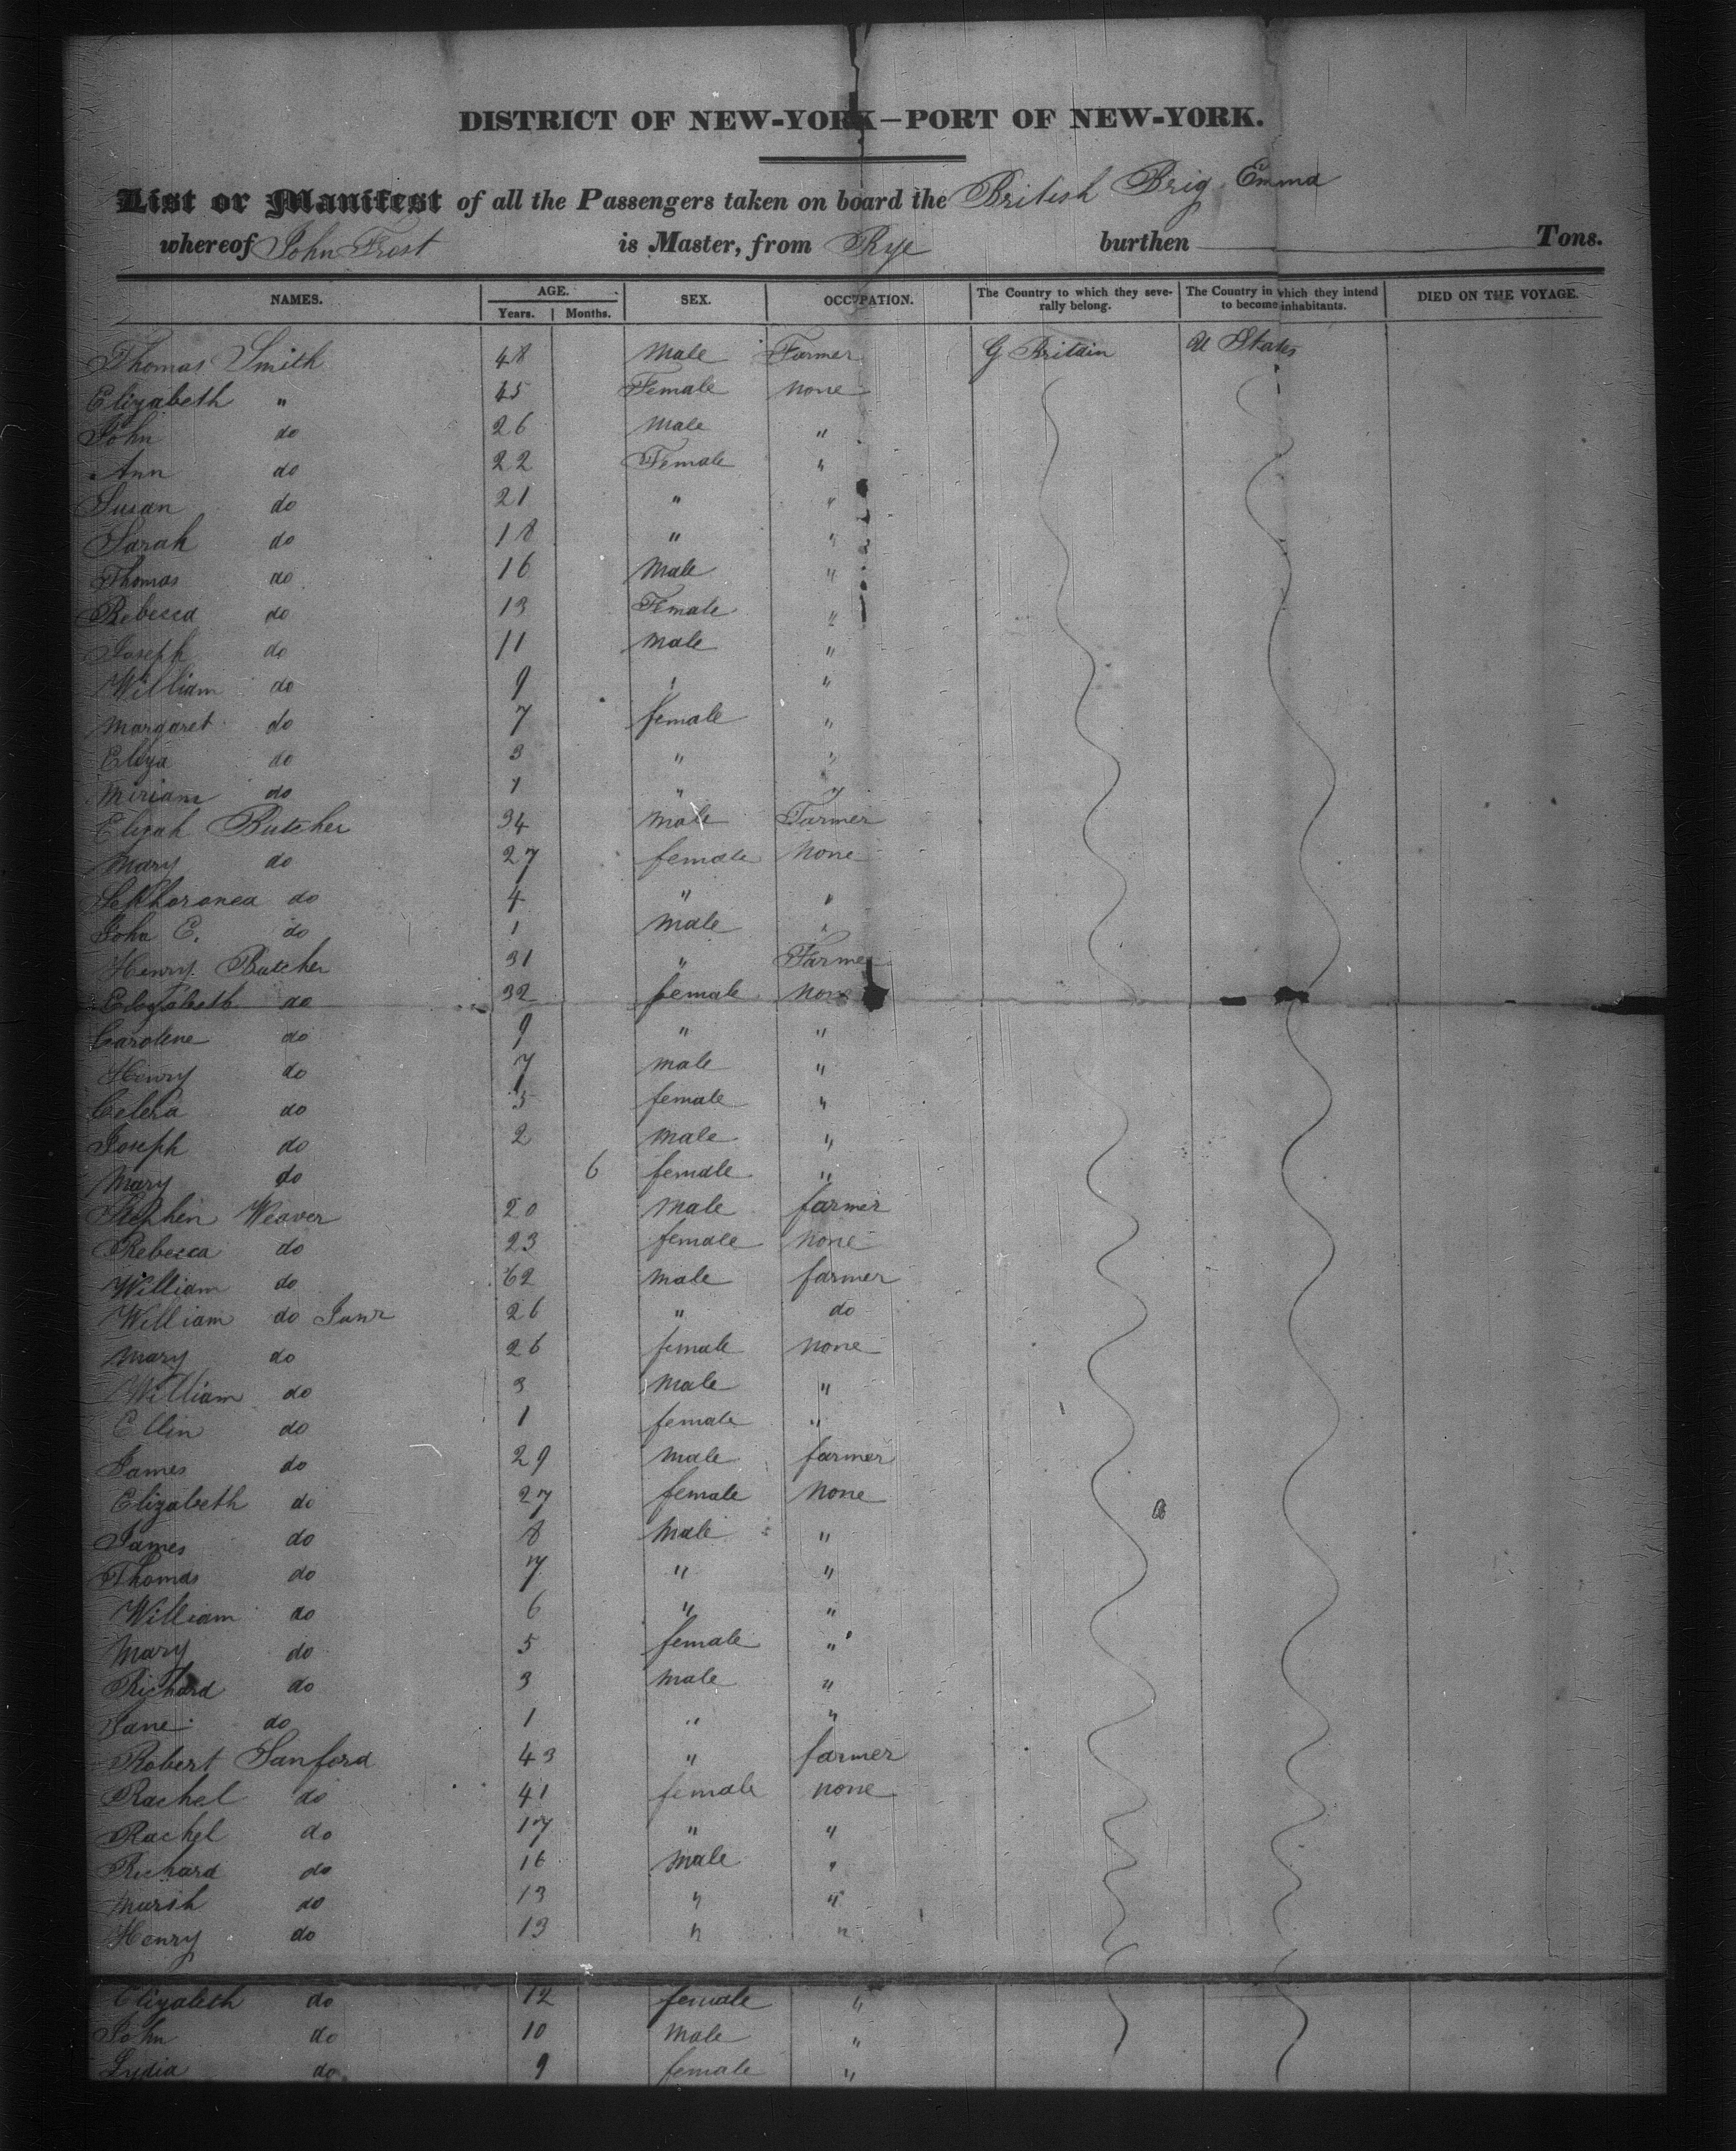 DISTRICT OF NEW-YORK—PORT OF NEW-YORK.
List or Manifest of all the Passengers taken on board the British Brig Emma
whereof John Frost is Master, from Rye burthen Tons.
NAMES. AGE. Years. Months. SEX. OCCUPATION. The Country to which they severally belong. The Country in which they intend to become inhabitants. DIED ON THE VOYAGE.
Thomas Smith 48 Male Farmer G Britain U States
Elizabeth " 45 Female none
John do 26 Male "
Ann do 22 Female "
Susan do 21 " "
Sarah do 18 " "
Thomas do 16 Male "
Rebecca do 13 Female "
Joseph do 11 Male "
William do 9 " "
Margaret do 7 female "
Eliza do 3 " "
Miriam do 1 " "
Elijah Butcher 34 Male Farmer
Mary do 27 female None
do 4 " "
John E. do 1 Male "
Henry Butcher 31 " Farmer
Elizabeth do 32 female none
Caroline do 9 " "
Henry do 7 male "
do 5 female "
Joseph do 2 Male "
Mary do 6 female "
Stephen Weaver 20 Male farmer
Rebecca do 23 female none
William do 62 male farmer
William do Junr 26 " do
Mary do 26 female none
William do 3 Male "
Ellin do 1 female "
James do 29 male farmer
Elizabeth do 27 female None
James do 8 Male "
Thomas do 7 " "
William do 6 " "
Mary do 5 female "
Richard do 3 male "
Jane do 1 " "
Robert Sanford 43 " farmer
Rachel do 41 female none
Rachel do 17 " "
Richard do 16 Male "
Marsh do 13 " "
Henry do 13 " "
Elizabeth do 12 female "
John do 10 Male "
Lydia do 9 female "